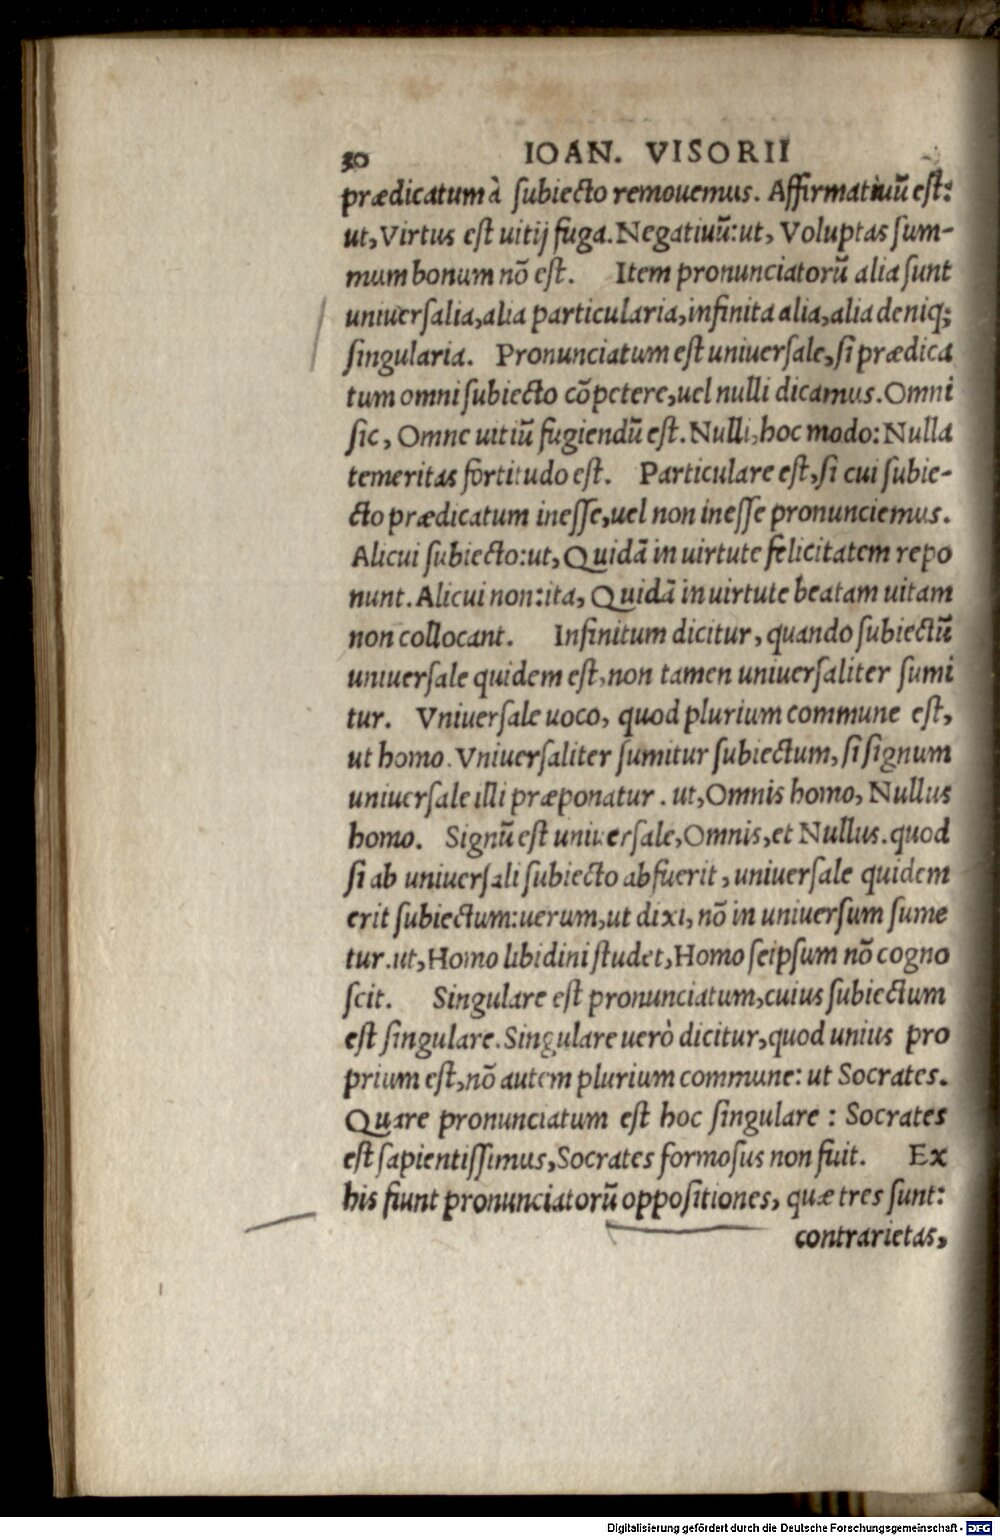 30 IOAN. VISORII
prædicatum à subiecto remouemus. Affirmatiuũ est:
ut, Virtus est uitij fuga. Negatiuũ: ut, Voluptas sum-
mum bonum nõ est. Item pronunciatorũ alia sunt
uniuersalia, alia particularia, infinita alia, alia deniq;
singularia. Pronunciatum est uniuersale, si prædica
tum omni subiecto cõpetere, uel nulli dicamus. Omni
sic, Omne uitiũ fugiendũ est. Nulli, hoc modo: Nulla
temeritas fortitudo est. Particulare est, si cui subie-
cto prædicatum inesse, uel non inesse pronunciemus.
Alicui subiecto: ut, Quidã in uirtute felicitatem repo
nunt. Alicui non: ita, Quidã in uirtute beatam uitam
non collocant. Infinitum dicitur, quando subiectũ
uniuersale quidem est, non tamen uniuersaliter sumi
tur. Vniuersale uoco, quod plurium commune est,
ut homo. Vniuersaliter sumitur subiectum, si signum
uniuersale illi præponatur. ut, Omnis homo, Nullus
homo. Signũ est uniuersale, Omnis, et Nullus. quod
si ab uniuersali subiecto abfuerit, uniuersale quidem
erit subiectum: uerum, ut dixi, nõ in uniuersum sume
tur. ut, Homo libidini studet, Homo seipsum nõ cogno
scit. Singulare est pronunciatum, cuius subiectum
est singulare. Singulare uerò dicitur, quod unius pro
prium est, nõ autem plurium commune: ut Socrates.
Quare pronunciatum est hoc singulare: Socrates
est sapientissimus, Socrates formosus non fuit. Ex
his fiunt pronunciatorũ oppositiones, quæ tres sunt:
contrarietas,
Digitalisierung gefördert durch die Deutsche Forschungsgemeinschaft - DFG